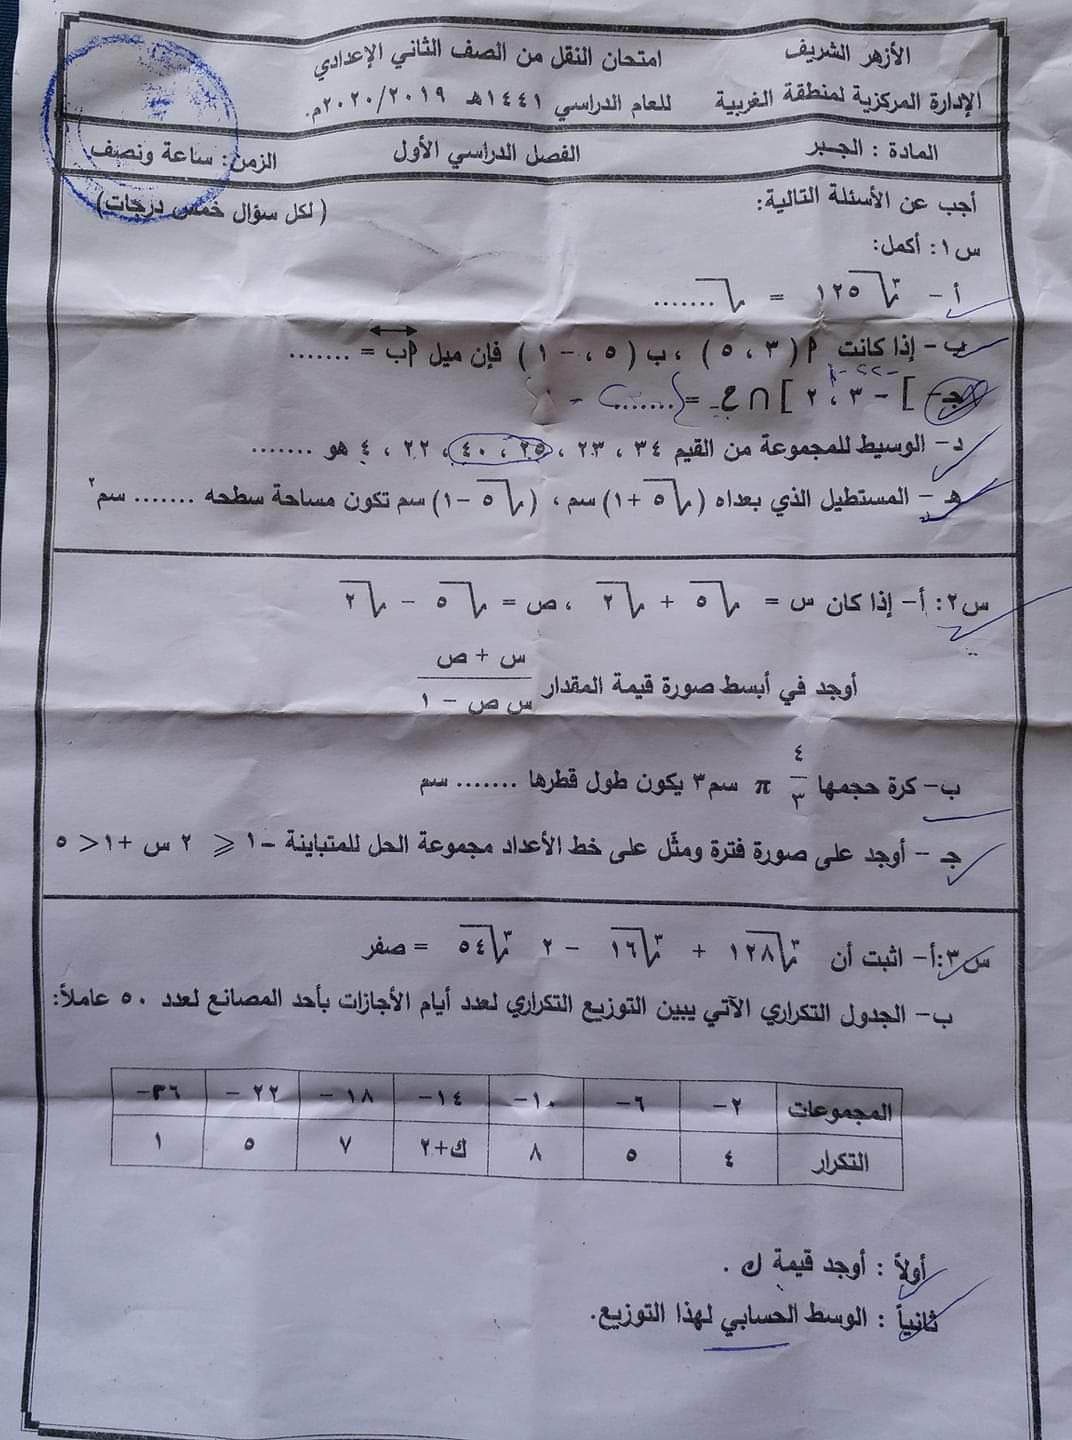 الأزهر الشريف
امتحان النقل من الصف الثاني الإعدادي
الإدارة المركزية لمنطقة الغربية
للعام الدراسي ١٤٤١هـ ٢٠١٩/٢٠٢٠م.
المادة : الجبر
الفصل الدراسي الأول
الزمن: ساعة ونصف
أجب عن الأسئلة التالية:
( لكل سؤال خمس درجات)
س١: أكمل:
أ- ∛١٢٥ = √.......
ب- إذا كانت أ( ٣ ، ٥ ) ، ب ( ٥ ، -١ ) فإن ميل أب = .......
جـ- ] -٣ ، ٢ [ ∩ ح_ = .......
د- الوسيط للمجموعة من القيم ٣٤ ، ٢٣ ، ٢٥ ، ٤٠ ، ٢٢ ، ٤ هو .......
هـ- المستطيل الذي بعداه (√٥ +١) سم ، (√٥ -١) سم تكون مساحة سطحه ....... سم٢
س٢: أ- إذا كان س = √٥ + √٢ ، ص = √٥ - √٢
أوجد في أبسط صورة قيمة المقدار (س + ص)/(س ص - ١)
ب- كرة حجمها ٤/٣ π سم٣ يكون طول قطرها ....... سم
جـ- أوجد على صورة فترة ومثّل على خط الأعداد مجموعة الحل للمتباينة -١ ⩽ ٢ س +١ < ٥
س٣: أ- اثبت أن ∛١٢٨ + ∛١٦ - ٢ ∛٥٤ = صفر
ب- الجدول التكراري الآتي يبين التوزيع التكراري لعدد أيام الأجازات بأحد المصانع لعدد ٥٠ عاملاً:
المجموعات ٢- ٦- ١٠- ١٤- ١٨- ٢٢- ٣٦-
التكرار ٤ ٥ ٨ ك+٢ ٧ ٥ ١
أولاً : أوجد قيمة ك .
ثانياً : الوسط الحسابي لهذا التوزيع.